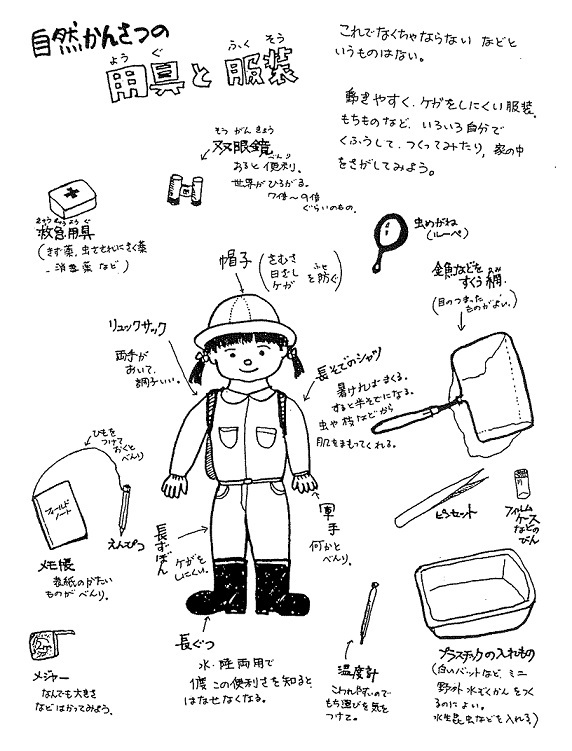 自然かんさつの
よう ぐ ふく そう
用具と服装
これでなくちゃならない などと
いうものはない。
動きやすく、ケガをしにくい服装、
もちものなど、いろいろ自分で
くふうして、つくってみたり、家の中
をさがしてみよう。
そうがんきょう
双眼鏡
べんり
あると便利。
世界がひろがる。
7倍〜9倍
ぐらいのもの。
きゅうきゅうようぐ
救急用具
(きず薬、虫さされにきく薬
、消毒薬など)
虫めがね
(ルーペ)
金魚などを
あみ
すくう網
(目のつまった
ものがよい。)
帽子
(さむさ
日ざし
ケガ
ふせ
を防ぐ)
リュックサック
両手が
あいて、
調子いい。
長そでのシャツ
暑ければまくる。
すると半そでになる。
虫や枝などから
肌をまもってくれる。
ひもを
つけて
おくと
べんり
フィールド
ノート
えんぴつ
メモ帳
表紙のかたい
ものがべんり。
長ずぼん
ケガを
しにくい。
軍手
何かと
べんり。
ピンセット
フィルム
ケース
などの
びん
メジャー
なんでも大きさ
などはかってみよう。
長ぐつ
水・陸両用で
1度この便利さを知ると
はなせなくなる。
温度計
こわれやすいので
もち運びを気を
つけて。
プラスチックの入れもの
(白いバットなど、ミニ
野外水ぞくかんをつく
るのによい。
水生昆虫などを入れる)